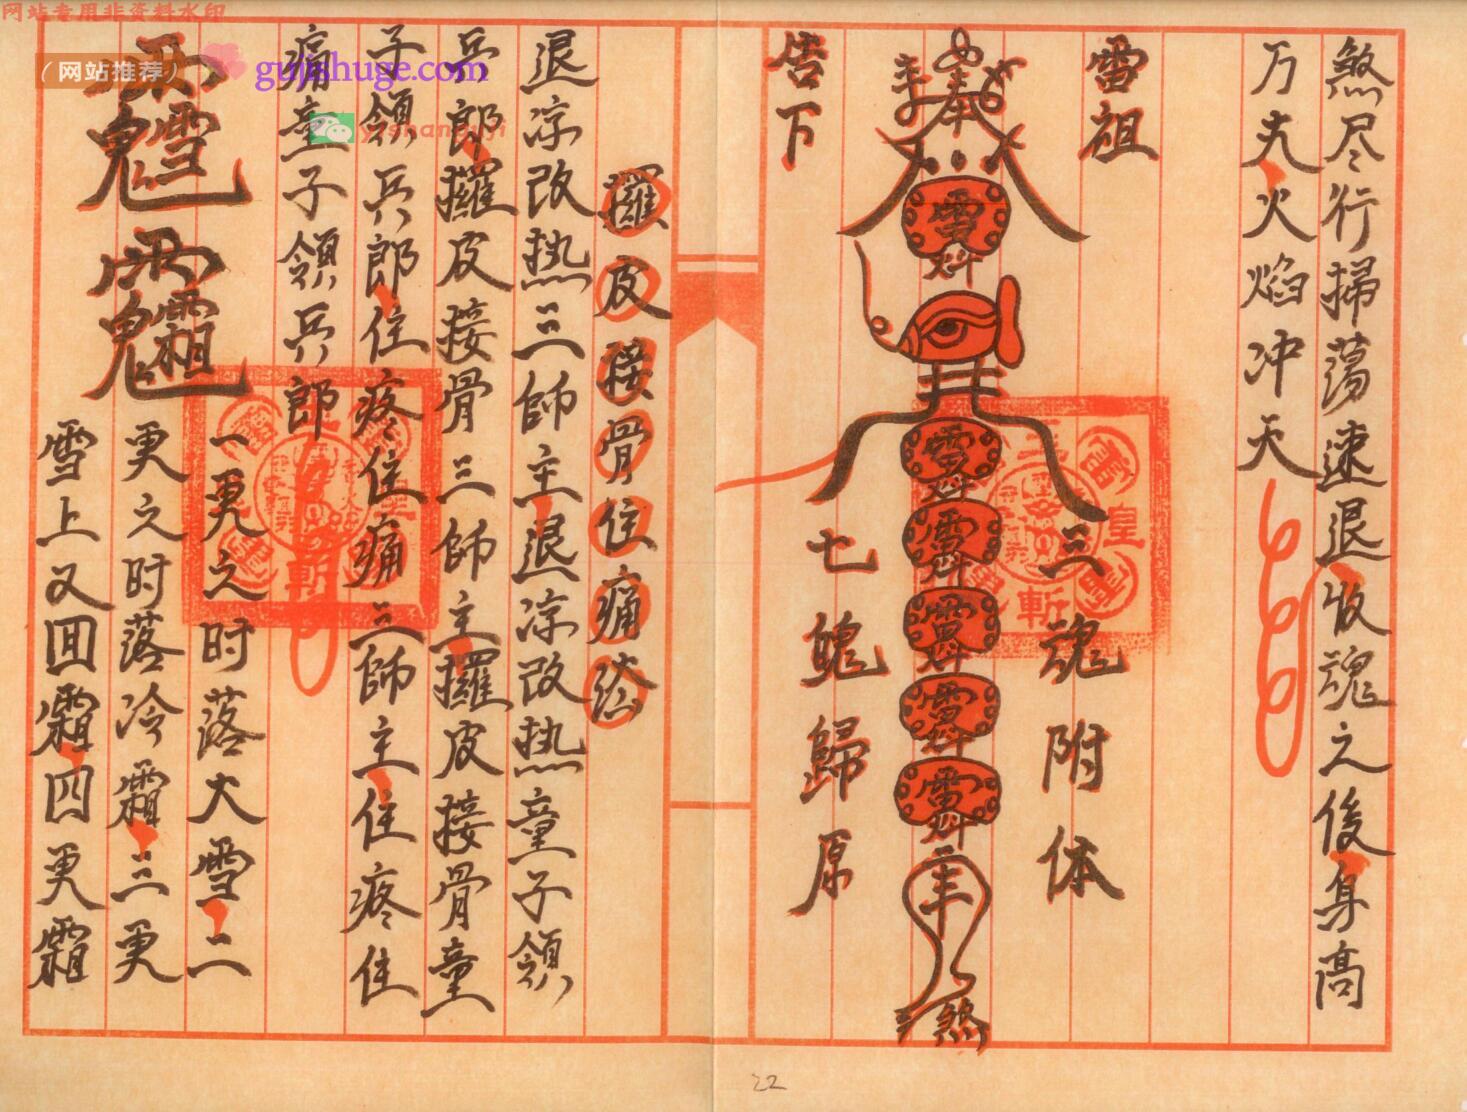 煞尽行掃蕩速退收魂之後身高
万丈火焰冲天
雷祖
奉
三魂附体
七魄歸原
告下
煞
攞皮接骨住痛法
退凉改热三師主退凉改热童子領
兵郎攞皮接骨三師主攞皮接骨童
子領兵郎住疼住痛三師主住疼住
痛童子領兵郎
一更之时落大雪二
更之时落冷霜三更
雪上又囬霜四更霜
22
网站专用非资料水印
（网站推荐）
gujishuge.com
yishanguji